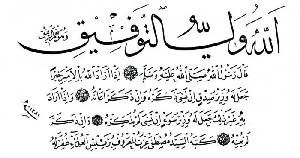 الله ولي التوفيق
قال رسول الله صلى الله عليه وسلم إذا أراد الله بالأمير خيرا
جعل له وزير صدق إن نسي ذكره وإن ذكر أعانه وإذا أراد
جعل له وزير سوء إن نسي لم يذكره وإن ذكر
لم يعنه كتبه السيد مصطفى عزت